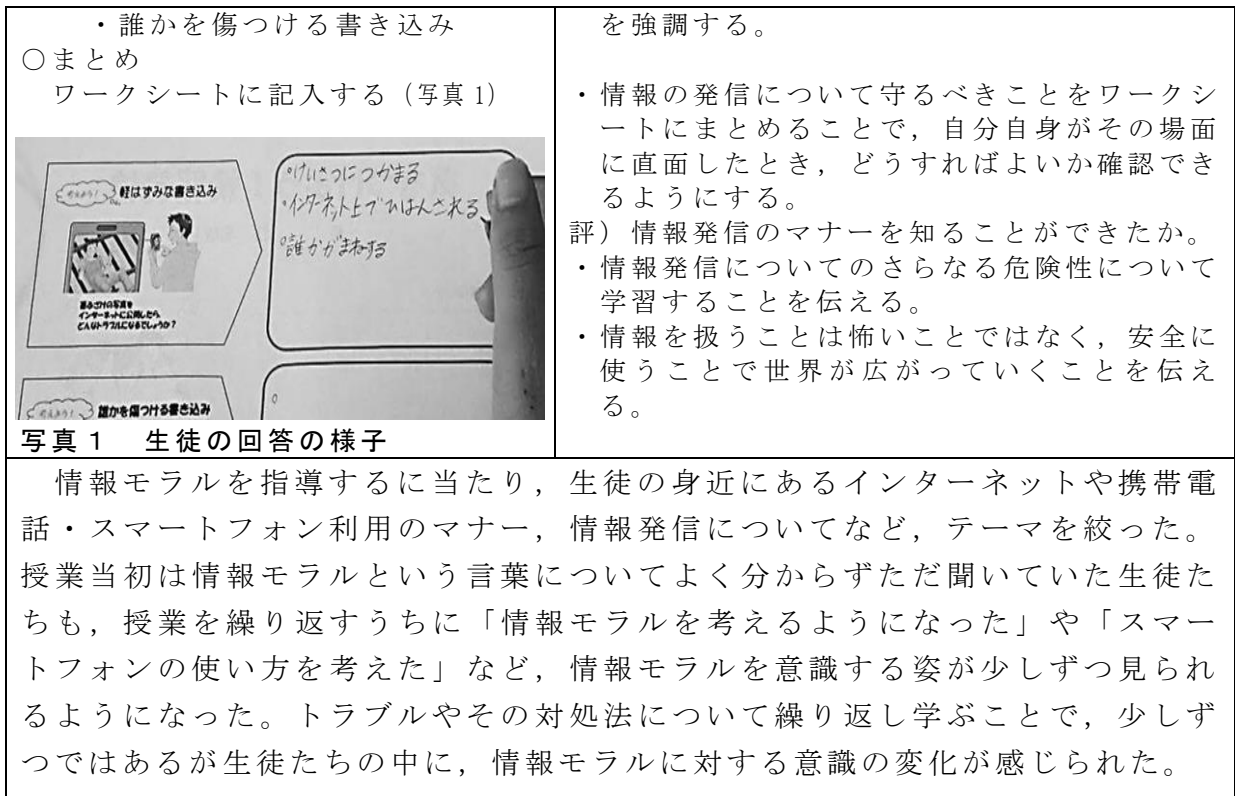 ・誰かを傷つける書き込み
〇まとめ
ワークシートに記入する（写真1）
考えよう！
軽はずみな書き込み
悪ふざけの写真を
インターネットに公開したら、
どんなトラブルになるでしょうか？
・けいさつにつかまる
・インターネット上でひはんされる
・誰かがまねする
誰かを傷つける書き込み
写真１　生徒の回答の様子
を強調する。
・情報の発信について守るべきことをワークシ
ートにまとめることで，自分自身がその場面
に直面したとき，どうすればよいか確認でき
るようにする。
評）情報発信のマナーを知ることができたか。
・情報発信についてのさらなる危険性について
学習することを伝える。
・情報を扱うことは怖いことではなく，安全に
使うことで世界が広がっていくことを伝え
る。
情報モラルを指導するに当たり，生徒の身近にあるインターネットや携帯電
話・スマートフォン利用のマナー，情報発信についてなど，テーマを絞った。
授業当初は情報モラルという言葉についてよく分からずただ聞いていた生徒た
ちも，授業を繰り返すうちに「情報モラルを考えるようになった」や「スマー
トフォンの使い方を考えた」など，情報モラルを意識する姿が少しずつ見られ
るようになった。トラブルやその対処法について繰り返し学ぶことで，少しず
つではあるが生徒たちの中に，情報モラルに対する意識の変化が感じられた。